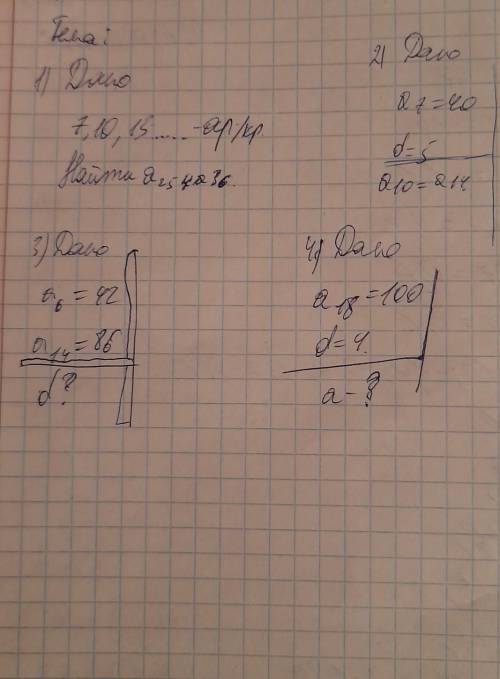 Тема:
1) Дано
7, 10, 15...... -ар/пр
Найти a₂₅ и a₃₆.
2) Дано
a₇=40
d=5
a₁₀=a₁₄
3) Дано
a₆=42
a₁₄=86
d?
4) Дано
a₁₈=100
d=4.
a-?